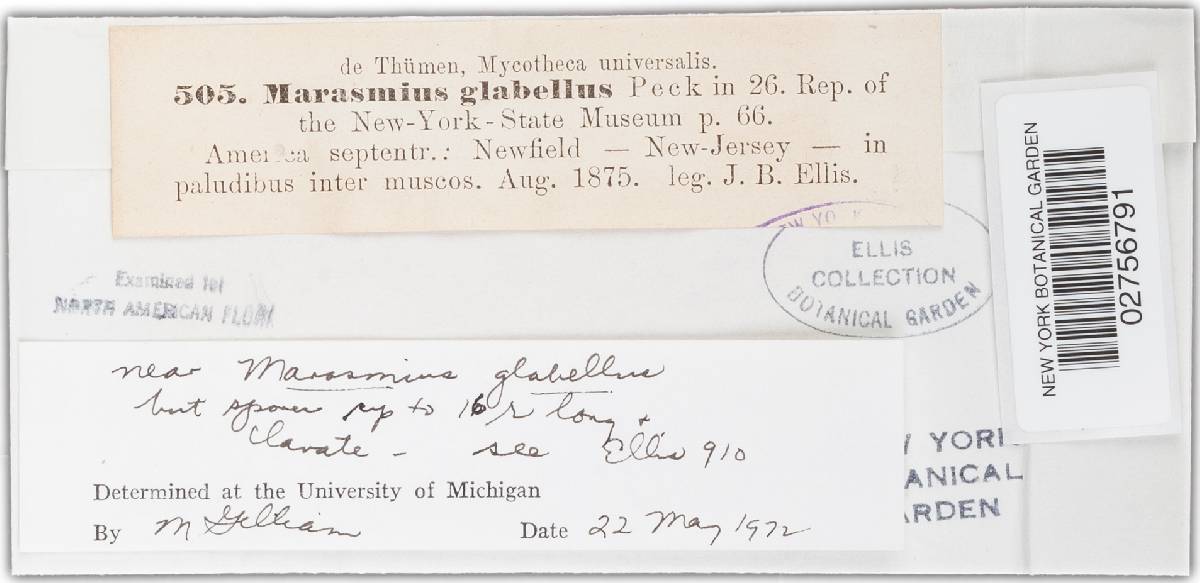 de Thümen, Mycotheca universalis.
505. Marasmius glabellus Peck in 26. Rep. of
the New-York-State Museum p. 66.
America septentr.: Newfield — New-Jersey — in
paludibus inter muscos. Aug. 1875. leg. J. B. Ellis.
ELLIS
COLLECTION
BOTANICAL GARDEN
Examined for
NORTH AMERICAN FLORA
near Marasmius glabellus
but spores up to 16 μ long +
clavate - see Ellis 910
Determined at the University of Michigan
By M Gilliam Date 22 May 1972
YORK
ANICAL
RDEN
NEW YORK BOTANICAL GARDEN
02756791